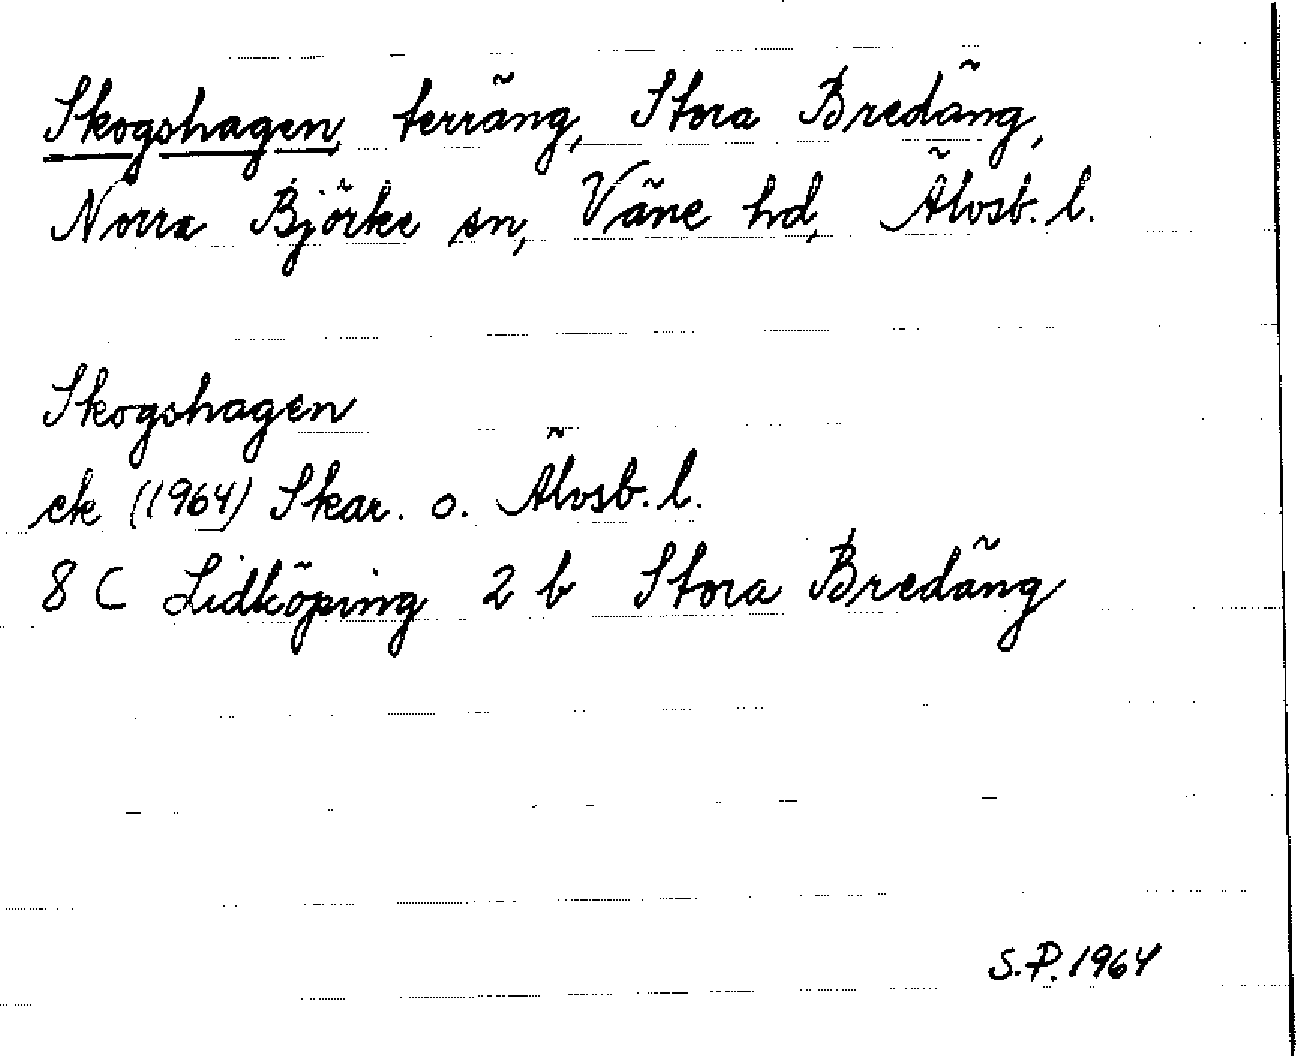 Skogshagen terräng, Stora Bredäng,
Norra Björke sn, Väne hd, Älvsb. l.
Skogshagen
ek (1964) Skar. o. Älvsb. l.
8 C Lidköping 2 b Stora Bredäng
S.P. 1964